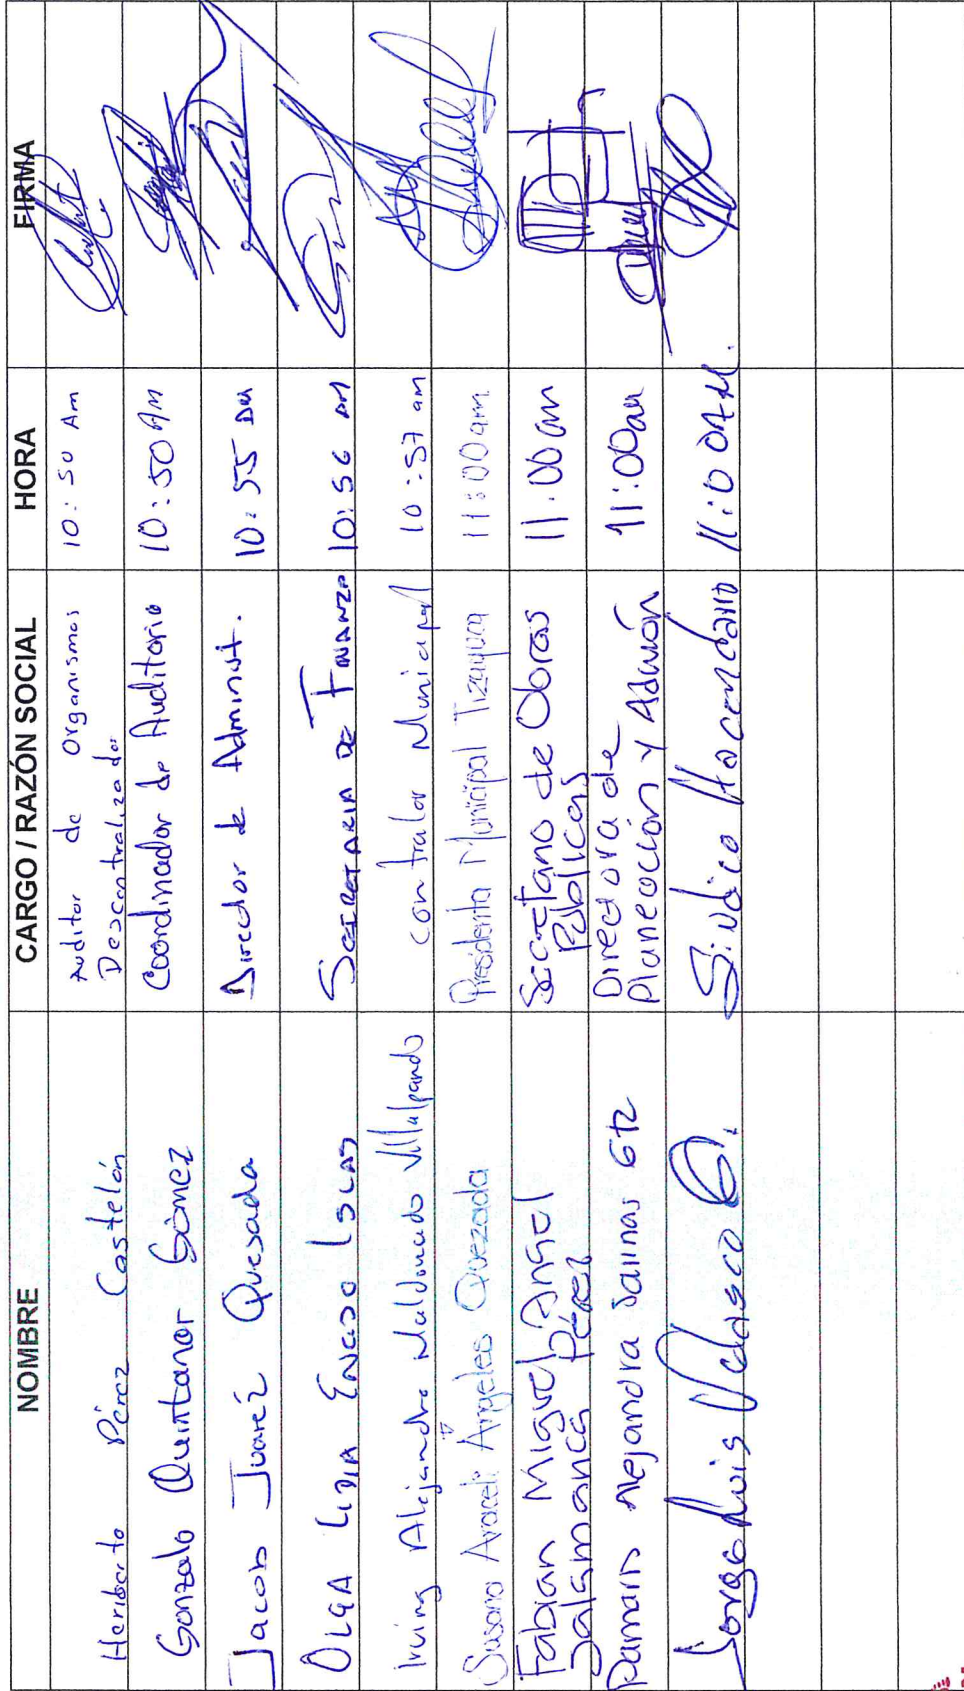 NOMBRE CARGO / RAZÓN SOCIAL HORA FIRMA
Heriberto Pérez Castelón Auditor de Organismos 10:50 Am
Descentralizados
Gonzalo Quintanar Gómez Coordinador de Auditoria 10:50 AM
Jacob Juaréz Quesada Director de Administ. 10:55 am
OLGA LIDIA ENCISO ISLAS SECRETARIA DE FINANZAS 10:56 AM
Irving Alejandro Maldonado Villalpando Contralor Municipal 10:57 am
Susana Araceli Ángeles Quezada Presidenta Municipal Tizayuca 11:00 am
Fabian Miguel Angel Secretario de Obras 11:00 am
Salamanca Pérez Públicas
Alejandra Salinas Gtz Directora de 11:00am
Planeación y Admón
Jorge Luis Velasco Sindico Hacendario 11:00AM.